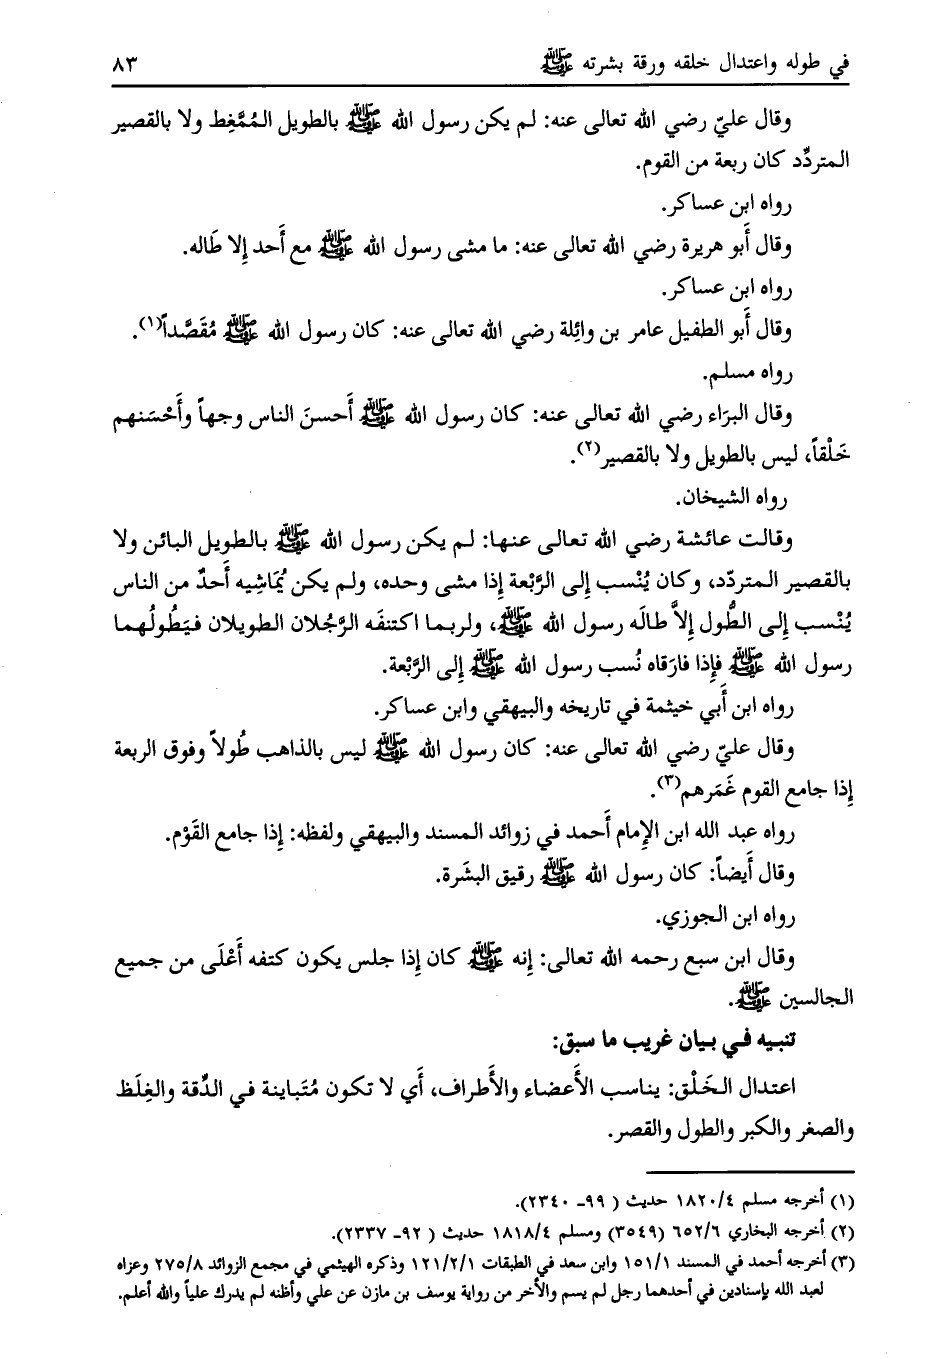 في طوله واعتدال خلقه ورقة بشرته ﷺ ٨٣
وقال عليّ رضي الله تعالى عنه: لم يكن رسول الله ﷺ بالطويل المُمَّغِط ولا بالقصير
المتردِّد كان ربعة من القوم.
رواه ابن عساكر.
وقال أَبو هريرة رضي الله تعالى عنه: ما مشى رسول الله ﷺ مع أَحد إِلا طَاله.
رواه ابن عساكر.
وقال أَبو الطفيل عامر بن وائِلة رضي الله تعالى عنه: كان رسول الله ﷺ مُقَصَّداً(١).
رواه مسلم.
وقال البرَاء رضي الله تعالى عنه: كان رسول الله ﷺ أَحسنَ الناس وجهاً وأَحْسَنهم
خَلْقاً، ليس بالطويل ولا بالقصير(٢).
رواه الشيخان.
وقالت عائشة رضي الله تعالى عنها: لم يكن رسول الله ﷺ بالطويل البائن ولا
بالقصير المتردّد، وكان يُنْسب إِلى الرَّبْعة إِذا مشى وحده، ولم يكن يُمَاشِيه أَحدٌ من الناس
يُنْسب إِلى الطُّول إِلاَّ طالَه رسول الله ﷺ، ولربما اكتنفَه الرَّجُلان الطويلان فيَطُولُهما
رسول الله ﷺ فإِذا فارَقاه نُسب رسول الله ﷺ إِلى الرَّبْعة.
رواه ابن أَبي خيثمة في تاريخه والبيهقي وابن عساكر.
وقال عليّ رضي الله تعالى عنه: كان رسول الله ﷺ ليس بالذاهب طُولاً وفوق الربعة
إِذا جامع القوم غَمَرهم(٣).
رواه عبد الله ابن الإِمام أَحمد في زوائد المسند والبيهقي ولفظه: إِذا جامع القَوْم.
وقال أَيضاً: كان رسول الله ﷺ رقيق البشَرة.
رواه ابن الجوزي.
وقال ابن سبع رحمه الله تعالى: إِنه ﷺ كان إِذا جلس يكون كتفه أَعْلَى من جميع
الجالسين ﷺ.
تنبيه في بيان غريب ما سبق:
اعتدال الخَلْق: يناسب الأَعضاء والأَطراف، أَي لا تكون مُتَباينة في الدِّقة والغِلَظ
والصغر والكبر والطول والقصر.
(١) أخرجه مسلم ١٨٢٠/٤ حديث ( ٩٩- ٢٣٤٠).
(٢) أخرجه البخاري ٦٥٢/٦ (٣٥٤٩) ومسلم ١٨١٨/٤ حديث ( ٩٢- ٢٣٣٧).
(٣) أخرجه أحمد في المسند ١٥١/١ وابن سعد في الطبقات ١٢١/٢/١ وذكره الهيثمي في مجمع الزوائد ٢٧٥/٨ وعزاه
لعبد الله بإسنادين في أحدهما رجل لم يسم والأخر من رواية يوسف بن مازن عن علي وأظنه لم يدرك علياً والله أعلم.